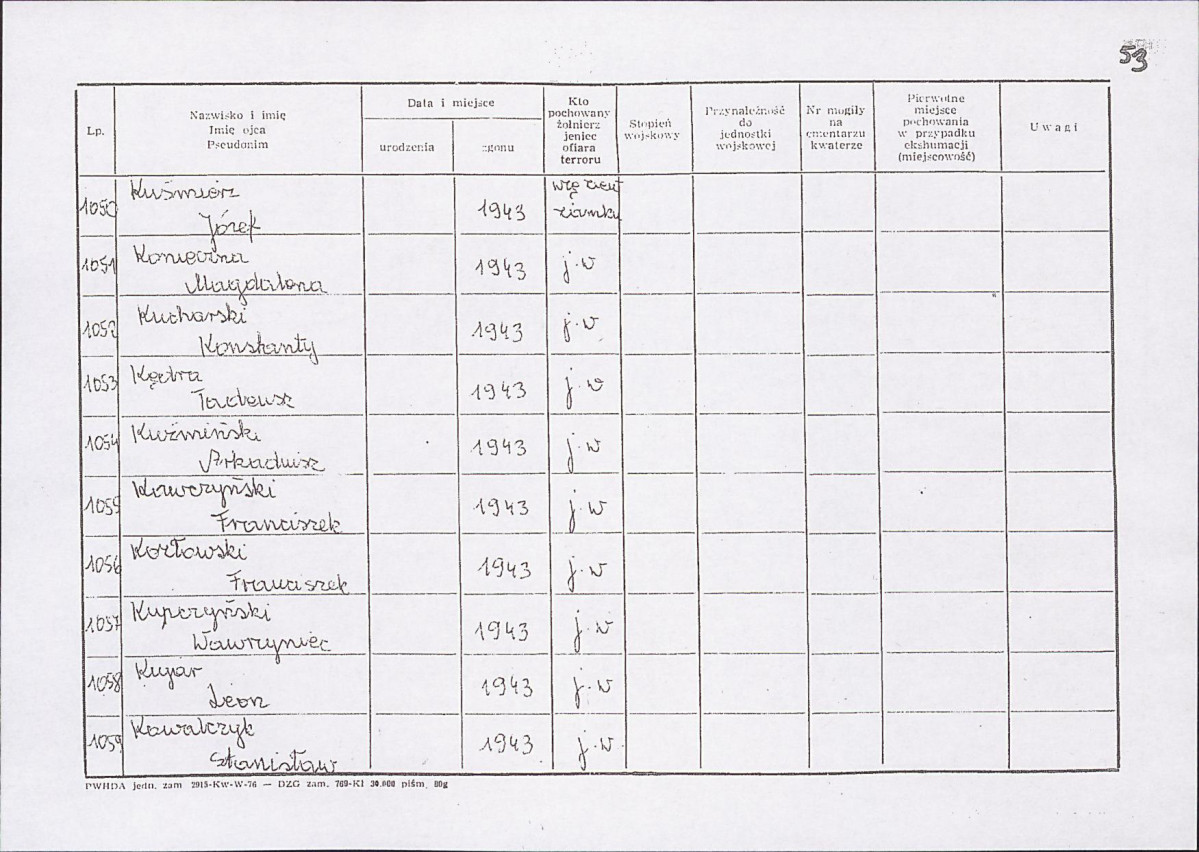 53
Lp.
Nazwisko i imię
Imię ojca
Pseudonim
Data i miejsce
urodzenia
zgonu
Kto
pochowany
żołnierz
jeniec
ofiara
terroru
Stopień
wojskowy
Przynależność
do
jednostki
wojskowej
Nr mogiły
na
cmentarzu
kwaterze
Pierwotne
miejsce
pochowania
w przypadku
ekshumacji
(miejscowość)
Uwagi
1050 Kuśmierz 1943 więzień
Józef zamku
1051 Konieczna 1943 j.w
Magdalena
1052 Kucharski 1943 j.w
Konstanty
1053 Kędra 1943 j.w
Tadeusz
1054 Kuźmiński 1943 j.w
Arkadiusz
1055 Kawczyński 1943 j.w
Franciszek
1056 Kozłowski 1943 j.w
Franciszek
1057 Kupczyński 1943 j.w
Wawrzyniec
1058 Kujar 1943 j.w
Leon
1059 Kowalczyk 1943 j.w
Stanisław
PWHDA jedn. zam 2915-Kw-W-76 — DZG zam. 769-KI 30.000 piśm. 80g